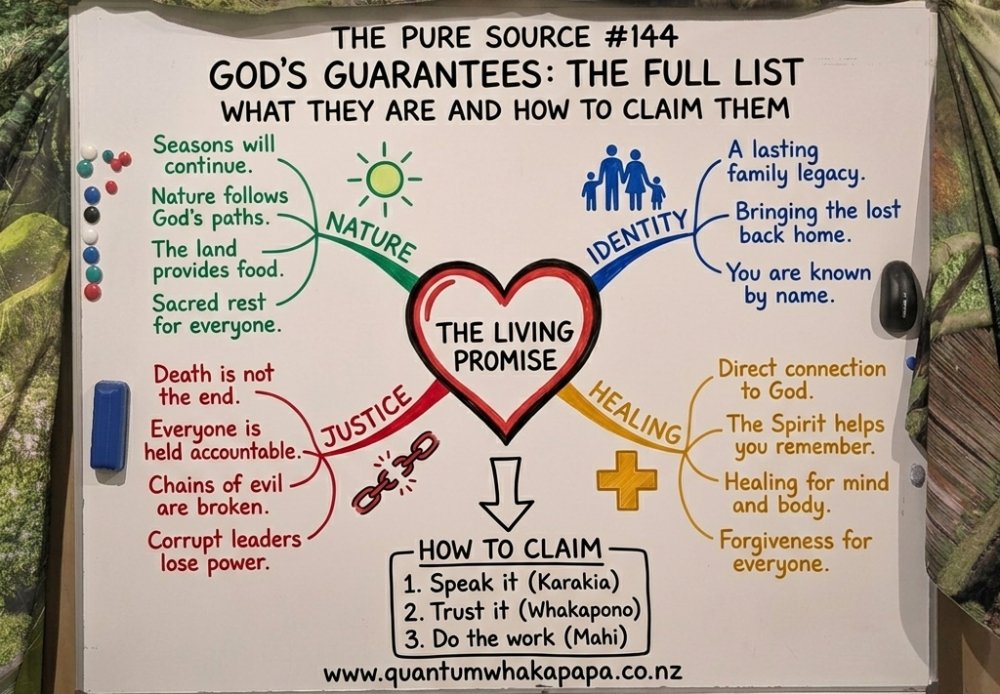 THE PURE SOURCE #144
GOD'S GUARANTEES: THE FULL LIST
WHAT THEY ARE AND HOW TO CLAIM THEM
Seasons will
continue.
Nature follows
God's paths.
The land
provides food.
Sacred rest
for everyone.
NATURE
A lasting
family legacy.
Bringing the lost
back home.
You are known
by name.
IDENTITY
THE LIVING
PROMISE
Death is not
the end.
Everyone is
held accountable.
Chains of evil
are broken.
Corrupt leaders
lose power.
JUSTICE
Direct connection
to God.
The Spirit helps
you remember.
Healing for mind
and body.
Forgiveness for
everyone.
HEALING
HOW TO CLAIM
1. Speak it (Karakia)
2. Trust it (Whakapono)
3. Do the work (Mahi)
www.quantumwhakapapa.co.nz